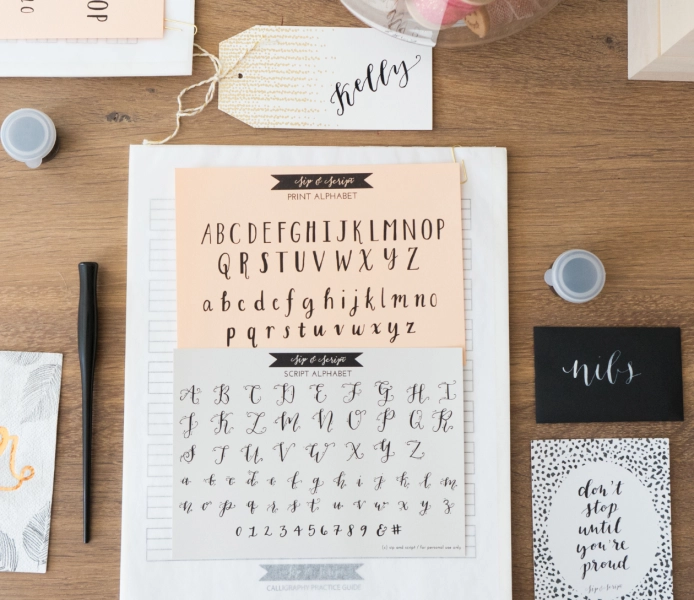 OP
Kelly
Sip & Script
PRINT ALPHABET
ABCDEFGHIJKLMNOP
QRSTUVWXYZ
abcdefghijklmno
pqrstuvwxyz
Sip & Script
SCRIPT ALPHABET
A B C D E F G H I
J K L M N O P Q R
S T U V W X Y Z
a b c d e f g h i j k l m
n o p q r s t u v w x y z
0 1 2 3 4 5 6 7 8 9 & #
(c) sip and script / for personal use only
Sip & Script
CALLIGRAPHY PRACTICE GUIDE
nibs
don't
stop
until
you're
proud.
Sip & Script